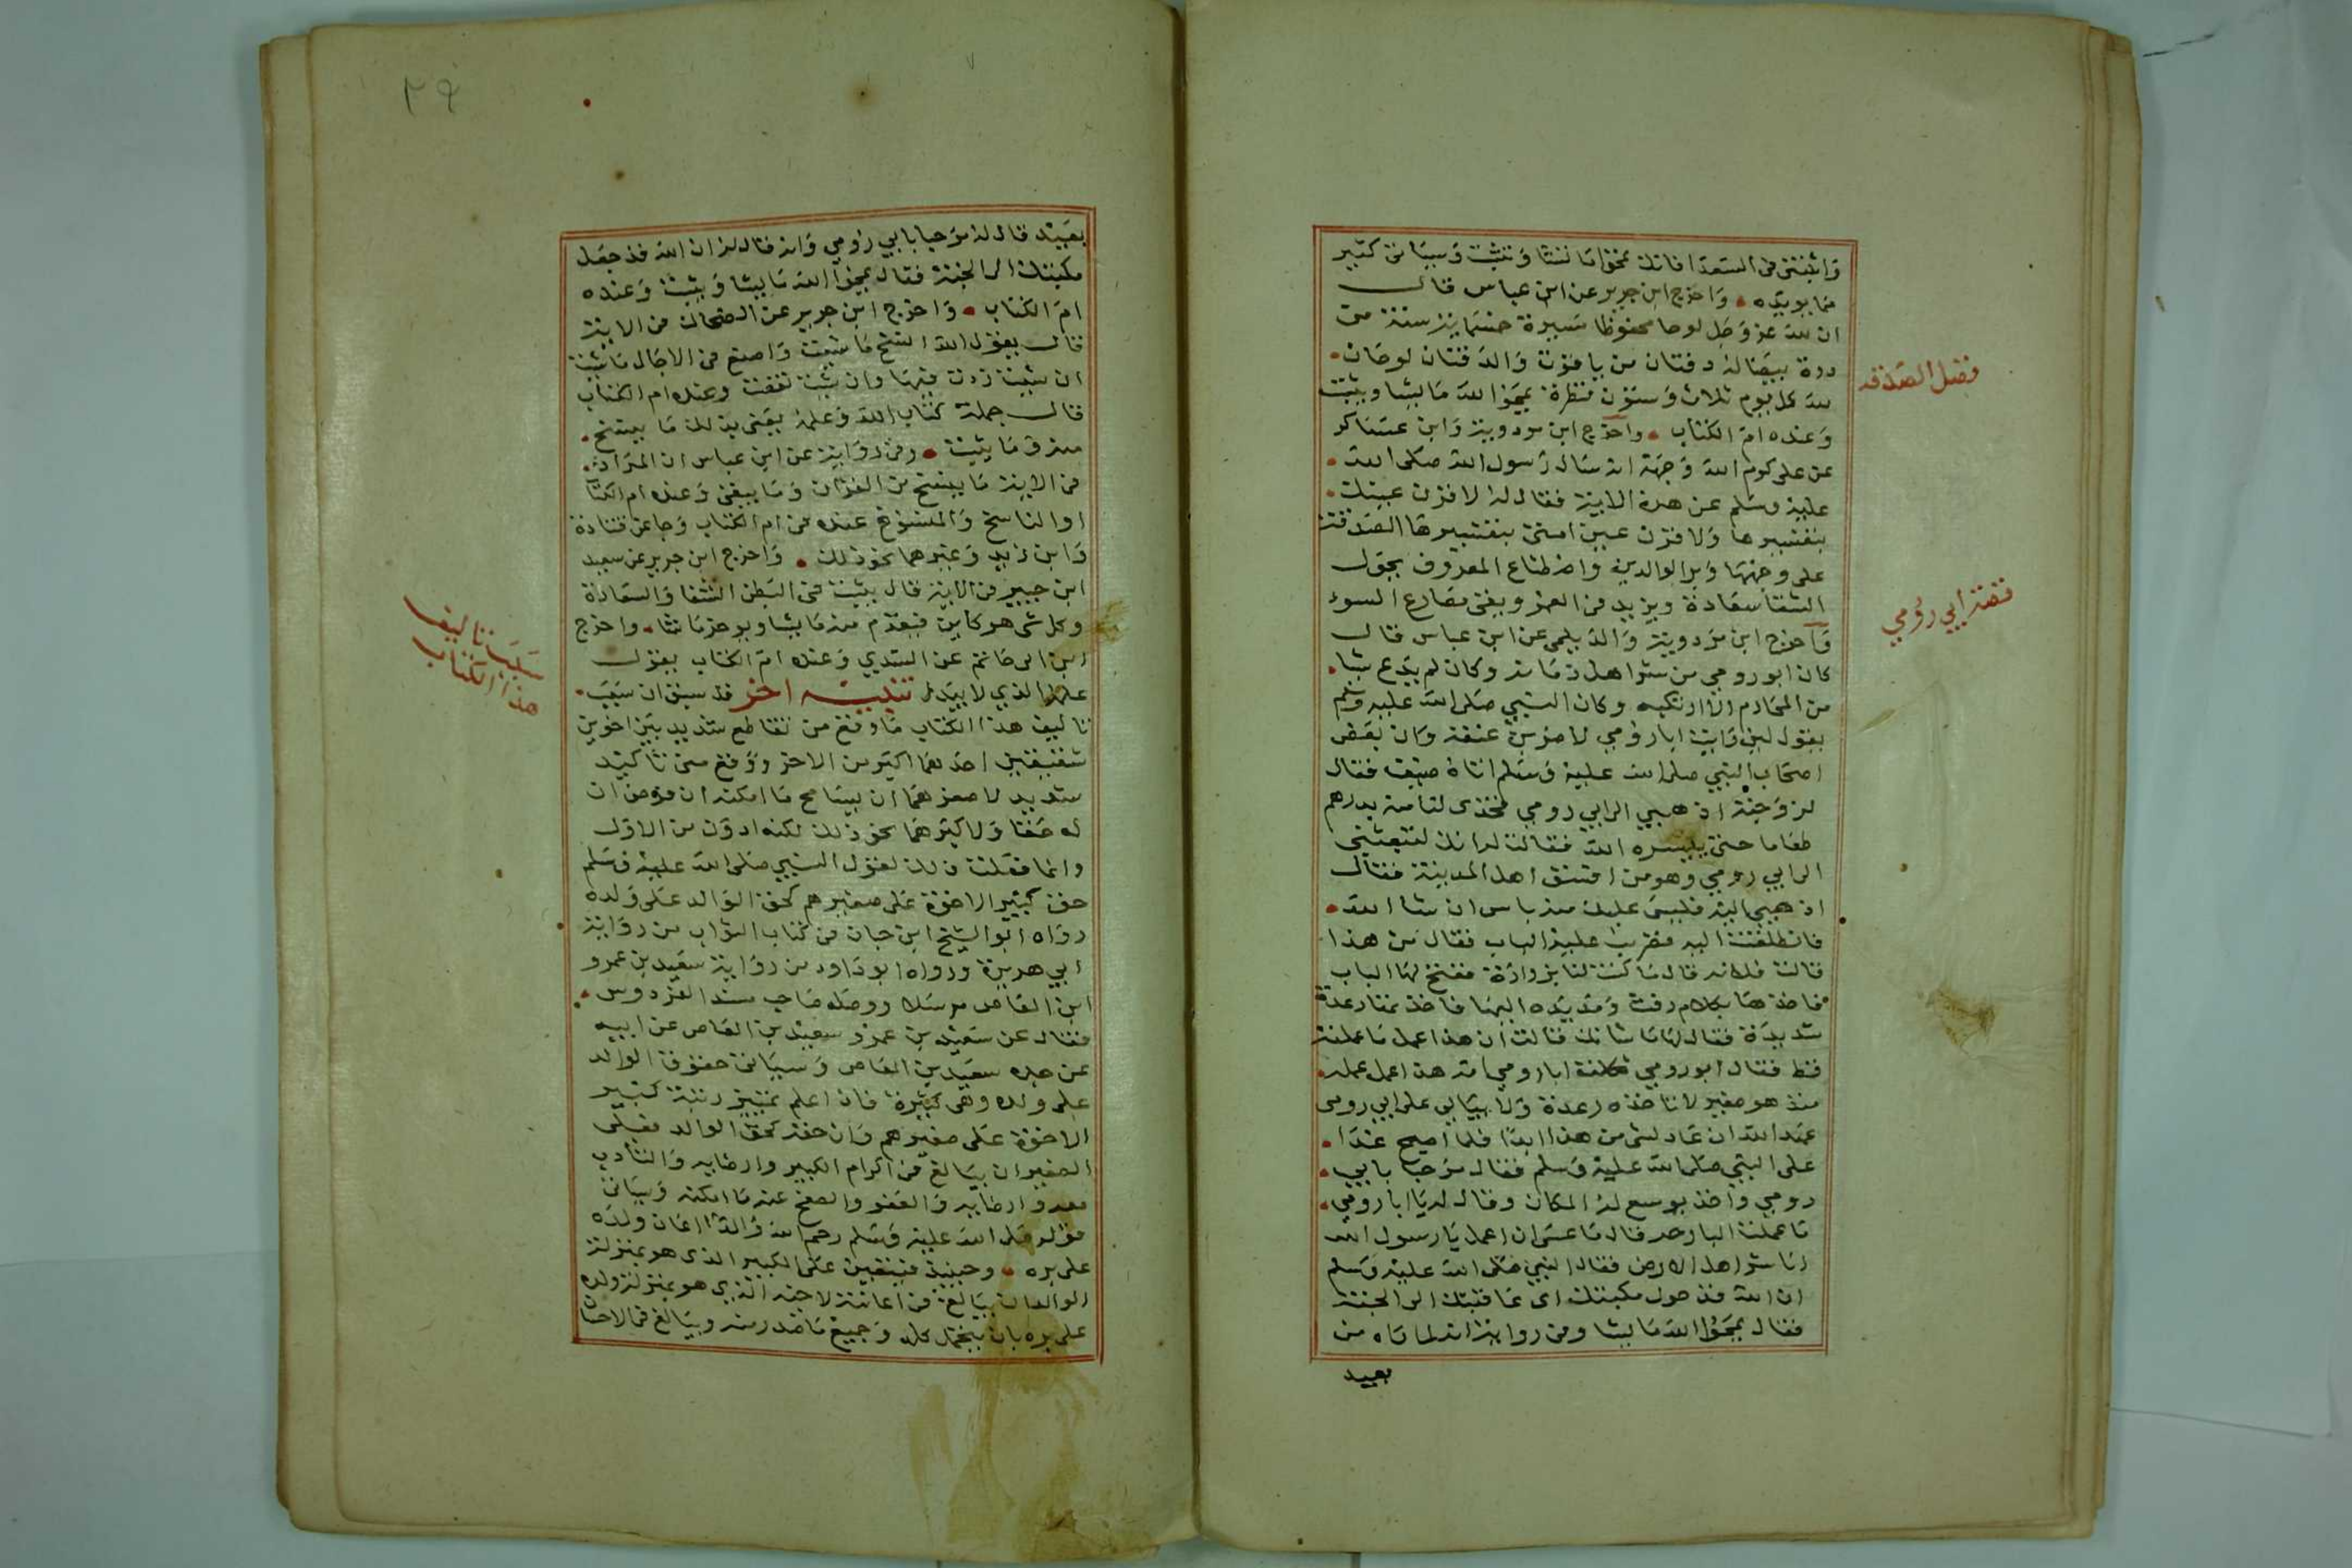 واثبتني في السعدا فانك تمحوا ما تشا وتثبت وسياتي كثير
مما يويده • واخرج ابن جرير عن ابن عباس قال
ان لله عز وجل لوحا محفوظا مسيرة خمسماية سنة من
درة بيضا له دفتان من ياقوت والدفتان لوحان •
لله كل يوم ثلاث وستون نظرة يمحوا الله ما يشا ويثبت
وعنده ام الكتاب • واخرج ابن مردويه وابن عساكر
عن علي كرم الله وجهه انه سال رسول الله صلى الله •
عليه وسلم عن هذه الاية فقال له لاقرن عينك •
بتفسيرها ولاقرن عين امتي بتفسيرها الصدقة
على وجهها وبر الوالدين واصطناع المعروف يحول
الشقا سعادة ويزيد في العمر ويقي مصارع السوء
واخرج ابن مردويه والديلمي عن ابن عباس قال
كان ابو رومي من شر اهل زمانه وكان لم يدع شيا •
من المحارم الا ارتكبه وكان النبي صلى الله عليه وسلم
يقول لين رايت ابا رومي لاضربن عنقه وكان بعض
اصحاب النبي صلى الله عليه وسلم اتاه ضيف فقال
لزوجته اذهبي الى ابي رومي فخذي لنا منه بدرهم
طعاما حتى ييسره الله فقالت له انك لتبعثني
الى ابي رومي وهو من افسق اهل المدينة فقال
اذهبي اليه فليس عليك منه باس ان شا الله •
فانطلقت اليه فضربت عليه الباب فقال من هذا
قالت فلانه قال ما كنت لنا بزوارة ففتح لها الباب
فاخذها بكلام رفث ومد يده اليها فاخذتها رعدة
شديدة فقال لها ما شانك قالت ان هذا عمل ما عملته
قط فقال ابو رومي ثكلت ابا رومي امه هذا عمل عمله •
منذ هو صغير لا تاخذه رعدة ولا يبالي على ابي رومي
عهد الله ان عاد لشي من هذا ابدا فلما اصبح غدا •
على النبي صلى الله عليه وسلم فقال مرحبا بابي •
رومي واخذ يوسع له المكان وقال له يا ابا رومي •
ما عملت البارحه قال ما عسى ان اعمل يا رسول الله
انا شر اهل الارض فقال النبي صلى الله عليه وسلم
ان الله قد حول مكتبك اي عاقبتك الى الجنة
فقال يمحوا الله ما يشا وفي رواية انه لما راه من
بعيد
فضل الصدقه
قصة ابي رومي
٢٩
بعيد قال له مرحبا بابي رومي وانه قال له ان الله قد جعل
مكتبك الى الجنة فقال يمحوا الله ما يشا ويثبت وعنده
ام الكتاب • واخرج ابن جرير عن الضحاك في الاية
قال يقول الله انسخ ما شيت واصنع في الاجال ما شيت
ان شيت زدت فيها وان شيت نقصت وعنده ام الكتاب
قال جملة كتاب الله وعلمه يعني بذلك ما ينسخ •
منه وما يثبت • وفي رواية عن ابن عباس ان المراد •
في الاية ما ينسخ من القران وما يبقى وعنده ام الكتاب
او الناسخ والمنسوخ عنده في ام الكتاب وجا عن قتادة
وابن زيد وغيرهما نحو ذلك • واخرج ابن جرير عن سعيد
ابن جبير في الاية قال يثبت في البطن الشقا والسعادة
وكل شي هو كاين فيقدم منه ما يشا ويوخر ما يشا • واخرج
ابن ابي حاتم عن السدي وعنده ام الكتاب يقول
علمه الذي لا يبدل تنبيه اخر قد سبق ان سبب •
تاليف هذا الكتاب ما وقع من تقاطع شديد بين اخوين
شقيقين احدهما اكبر من الاخر ووقع مني تاكيد
شديد لاصغرهما ان يسامح ما امكنه ان فرض ان
له حقا ولاكبرهما نحو ذلك لكنه ادون من الاول
وانما فعلت ذلك لقول النبي صلى الله عليه وسلم
حق كبير الاخوة على صغيرهم كحق الوالد على ولده
رواه ابو الشيخ ابن حبان في كتاب الثواب من رواية
ابي هريرة ورواه ابو داود من رواية سعيد بن عمرو
ابن العاص مرسلا ووصله صاحب مسند الفردوس •
فقال عن سعيد بن عمرو سعيد بن العاص عن ابيه
عن جده سعيد بن العاص وسياتي حقوق الوالد
على ولده وهي كثيرة فان اعلم بتميز رتبة كبير
الاخوة على صغيرهم وان حقه كحق الوالد فعلى
الصغير ان يبالغ في اكرام الكبير وارضايه والتادب
معه وارضايه والعفو والصفح عنه ما امكنه وسياتي
قوله صلى الله عليه وسلم رحم الله والدا اعان ولده
على بره • وحينيذ فيتعين على الكبير الذي هو بمنزلة
الوالد ان يبالغ في اعانته لاخيه الذي هو بمنزلة ولده
على بره بان يتحمل كله وجميع ما صدر منه ويبالغ في الاحسا
سبب تاليف
هذا الكتاب